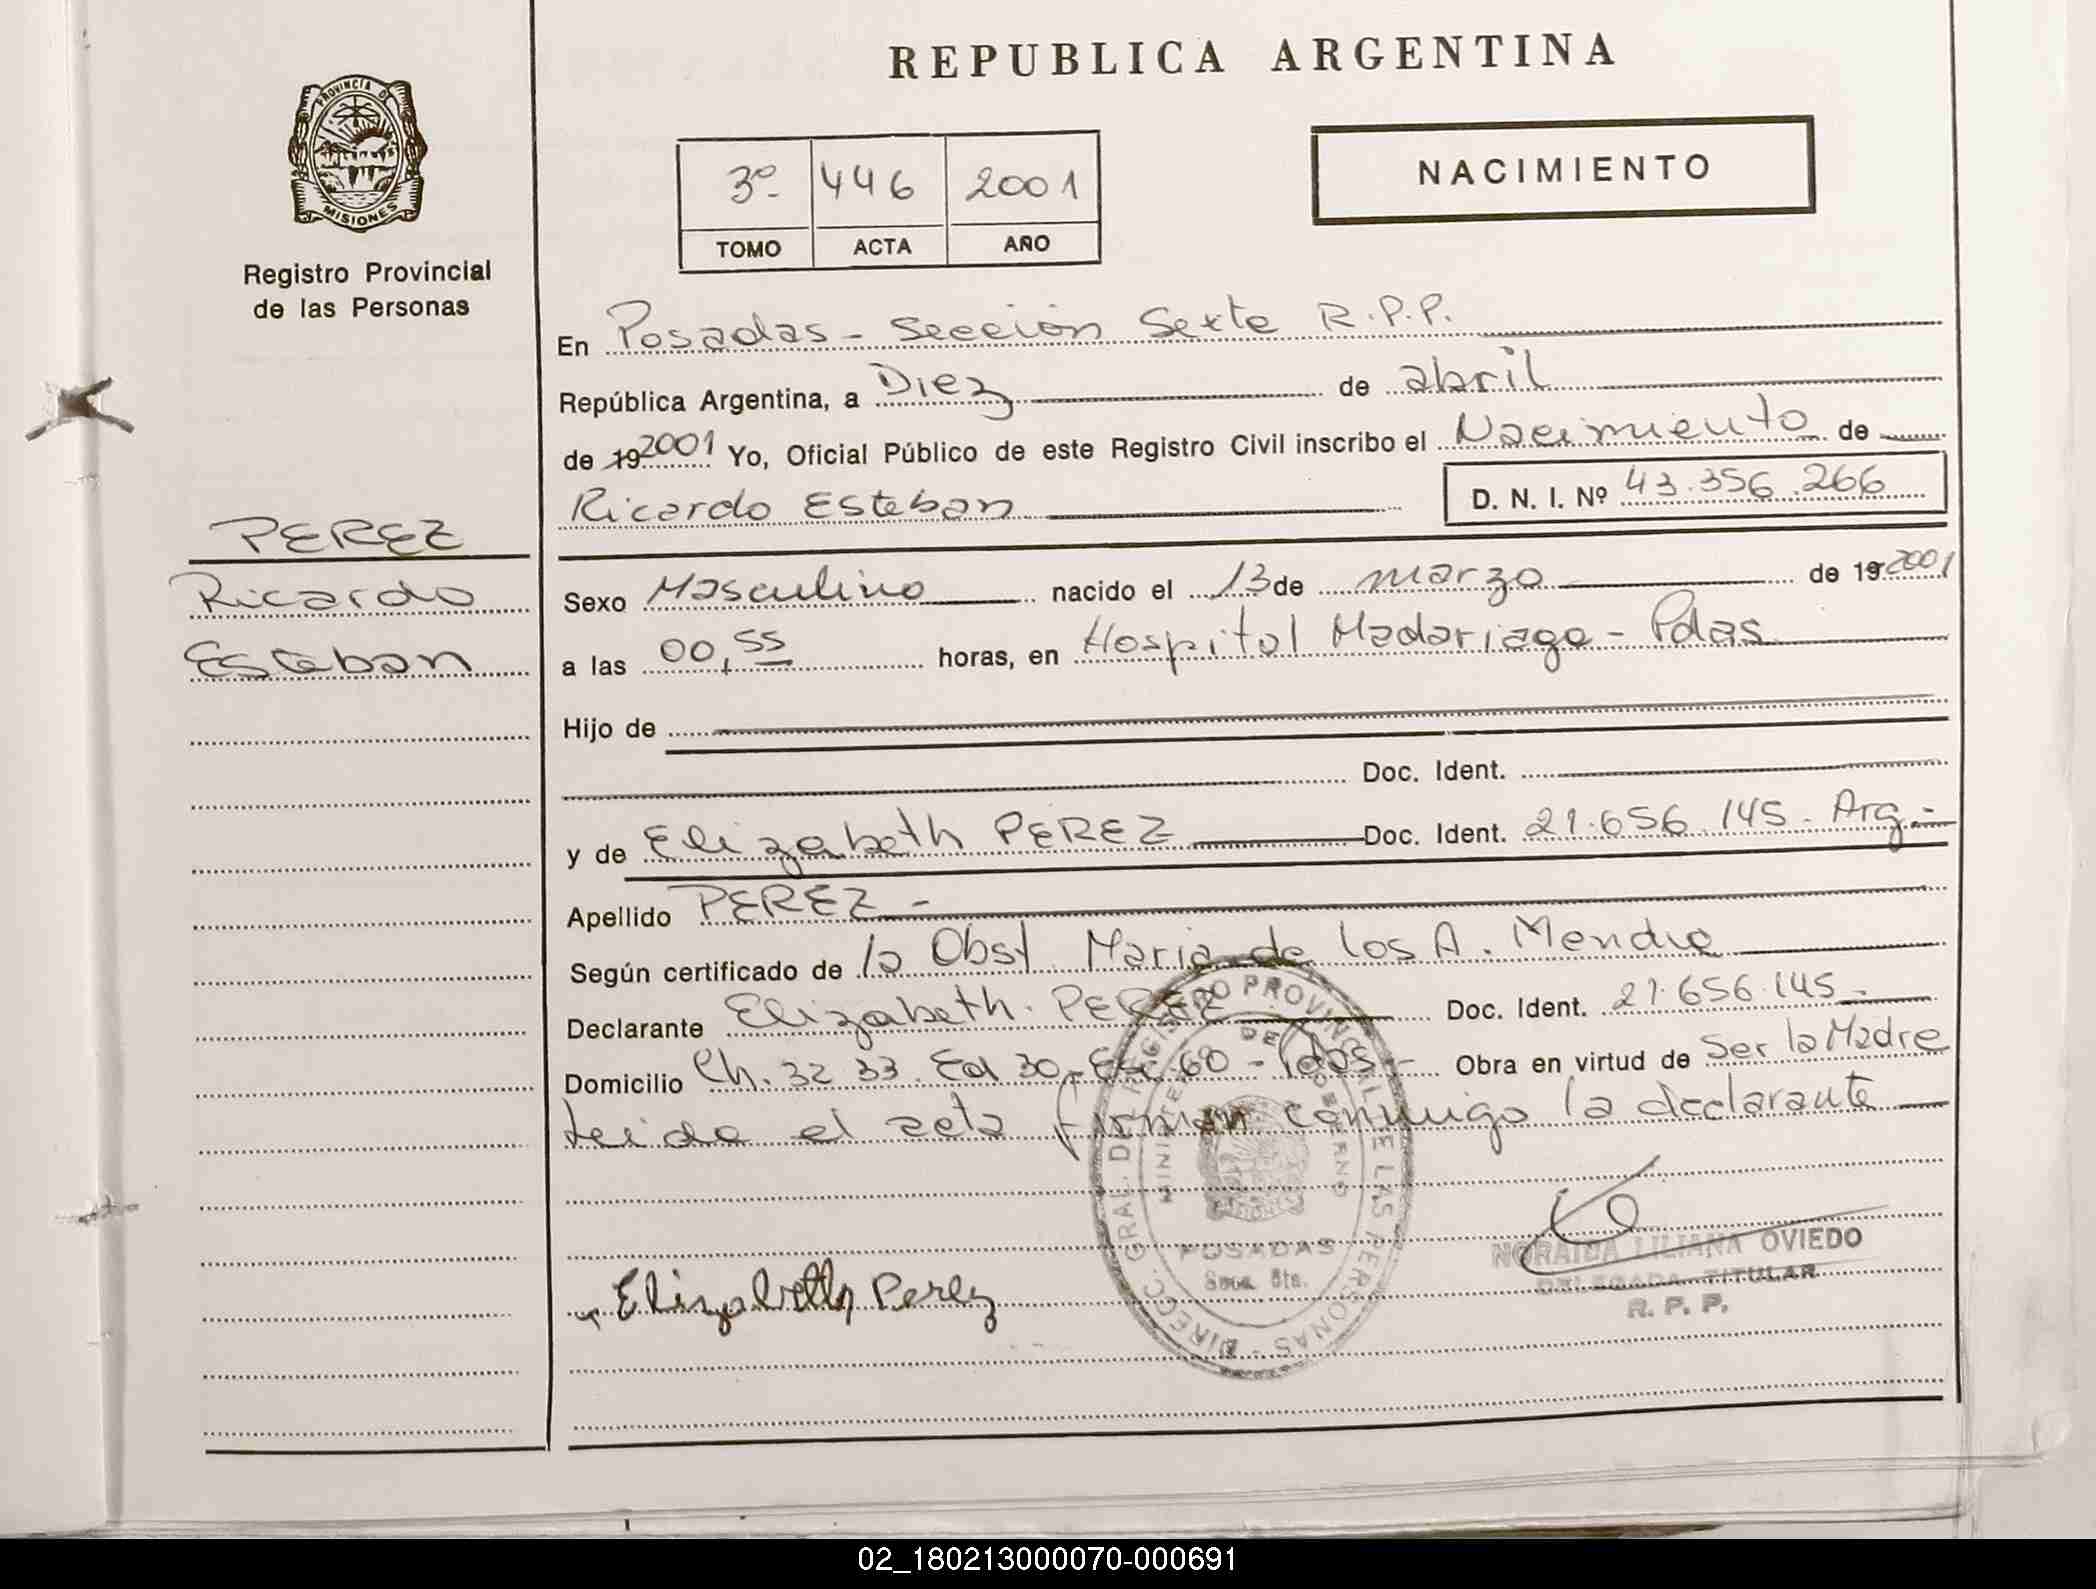 REPUBLICA ARGENTINA
PROVINCIA DE
MISIONES
Registro Provincial
de las Personas
3º 446 2001
TOMO ACTA AÑO
NACIMIENTO
En Posadas - Sección Sexta R.P.P.
República Argentina, a Diez de abril
de 19 2001 Yo, Oficial Público de este Registro Civil inscribo el Nacimiento de
Ricardo Esteban D. N. I. Nº 43.356.266
PEREZ
Ricardo
Esteban
Sexo Masculino nacido el 13 de marzo de 19 2001
a las 00,55 horas, en Hospital Madariaga - Pdas
Hijo de
Doc. Ident.
y de Elizabeth PEREZ Doc. Ident. 21.656.145. Arg.-
Apellido PEREZ -
Según certificado de la Obst. Maria de los A.
Declarante Elizabeth. PEREZ Doc. Ident. 21.656.145.-
Domicilio Ch. 32 33 Ed 30 - Esc. 60 - Pdas - Obra en virtud de Ser la Madre
leida el acta firman conmigo la declarante
DIRECC. GRAL. DEL REGISTRO PROVINCIAL DE LAS PERSONAS
MINISTERIO DE GOBIERNO
POSADAS
Secc. 6ta.
Elizabeth Perez
NORAIDA LILIANA OVIEDO
DELEGADA TITULAR
R. P. P.
02_180213000070-000691